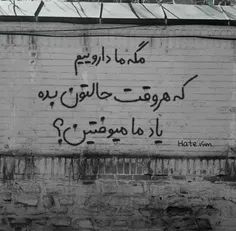 مگه ما داروییم
که هروقت حالتون بده
یاد ما میوفتین؟
Hate.vim